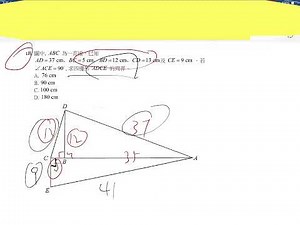 圖中，ABC 為一直線。已知
AD = 37 cm，BC = 5 cm，BD = 12 cm，CD = 13 cm 及 CE = 9 cm。若
∠ACE = 90°，求四邊形 ADCE 的周界。
A. 76 cm
B. 90 cm
C. 100 cm
D. 180 cm
D
13
12
37
C
B
35
A
9
E
41